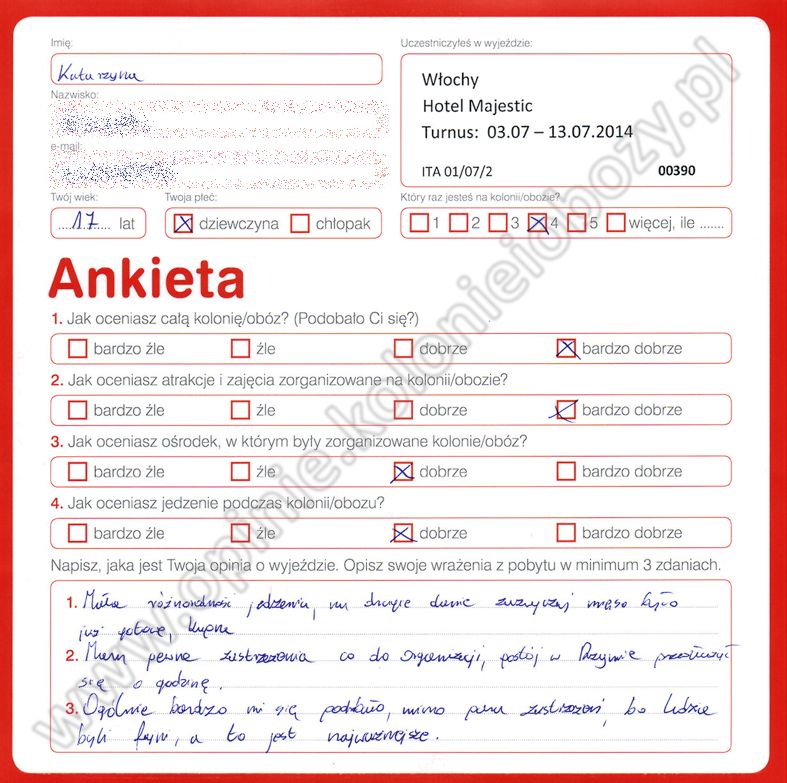 Imię:
Uczestniczyłeś w wyjeździe:
Katarzyna
Włochy
Nazwisko:
Hotel Majestic
Turnus: 03.07 – 13.07.2014
e-mail:
ITA 01/07/2 00390
Twój wiek: Twoja płeć: Który raz jesteś na kolonii/obozie?
17 lat dziewczyna chłopak 1 2 3 4 5 więcej, ile .......
Ankieta
1. Jak oceniasz całą kolonię/obóz? (Podobało Ci się?)
bardzo źle źle dobrze bardzo dobrze
2. Jak oceniasz atrakcje i zajęcia zorganizowane na kolonii/obozie?
bardzo źle źle dobrze bardzo dobrze
3. Jak oceniasz ośrodek, w którym były zorganizowane kolonie/obóz?
bardzo źle źle dobrze bardzo dobrze
4. Jak oceniasz jedzenie podczas kolonii/obozu?
bardzo źle źle dobrze bardzo dobrze
Napisz, jaka jest Twoja opinia o wyjeździe. Opisz swoje wrażenia z pobytu w minimum 3 zdaniach.
1. Mała różnorodność jedzenia, na drugie danie zazwyczaj mięso było
już gotowe, kupne
2. Mam pewne zastrzeżenia co do organizacji, postój w Rzymie przedłużył
się o godzinę.
3. Ogólnie bardzo mi się podobało, mimo paru zastrzeżeń, bo ludzie
byli fajni, a to jest najważniejsze.
www.opinie.kolonieiobozy.pl